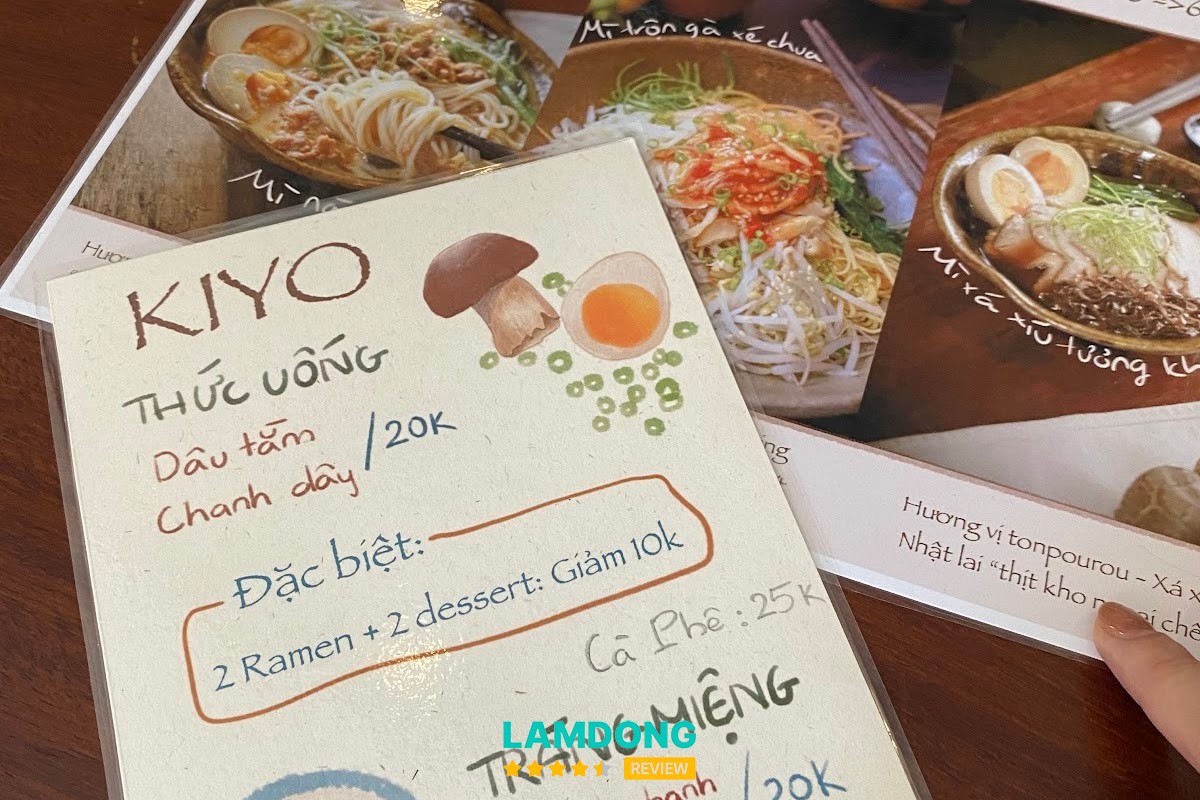 Mì trộn gà xé chua
Mì
Mì xá xíu tưởng
KIYO
THỨC UỐNG
Dâu tằm
Chanh dây
/20K
Đặc biệt:
2 Ramen + 2 dessert: Giảm 10k
Cà Phê: 25K
TRÁNG MIỆNG
/20K
Hương vị tonpourou - Xá x
Nhật lai "thịt kho
LAMDONG
REVIEW